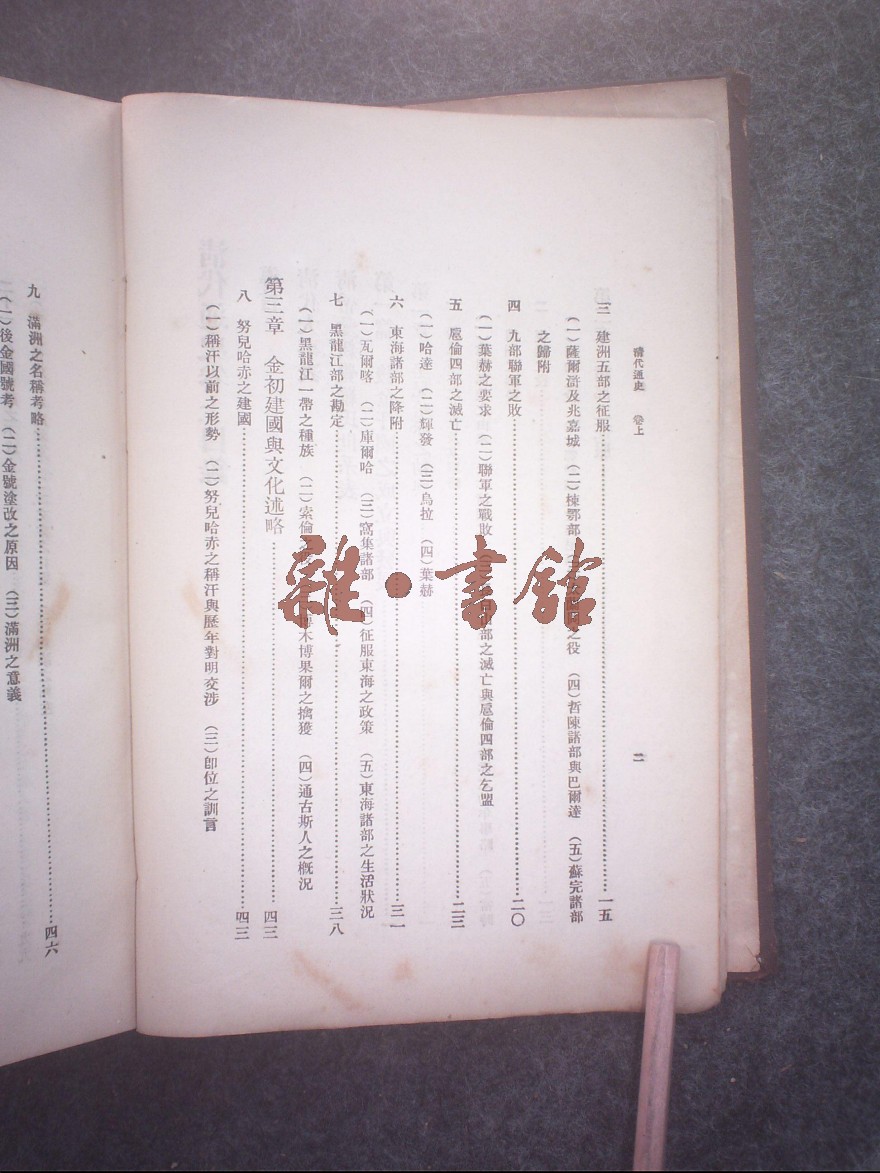 清代通史　卷上
二
三　建洲五部之征服…………一五
（一）薩爾滸及兆嘉城　（二）棟鄂部　之役　（四）哲陳諸部與巴爾達　（五）蘇完諸部
之歸附
四　九部聯軍之敗…………二〇
（一）葉赫之要求　（二）聯軍之戰敗　部之滅亡與扈倫四部之乞盟
五　扈倫四部之滅亡…………二三
（一）哈達　（二）輝發　（三）烏拉　（四）葉赫
六　東海諸部之降附…………三一
（一）瓦爾喀　（二）庫爾哈　（三）窩集諸部　（四）征服東海之政策　（五）東海諸部之生活狀況
七　黑龍江部之勘定…………三八
（一）黑龍江一帶之種族　（二）索倫　木博果爾之擒獲　（四）通古斯人之概況
第三章　金初建國與文化述略…………四三
八　努兒哈赤之建國…………四三
（一）稱汗以前之形勢　（二）努兒哈赤之稱汗與歷年對明交涉　（三）卽位之訓言
九　滿洲之名稱考略…………四六
（一）後金國號考　（二）金號塗改之原因　（三）滿洲之意義
雜·書館